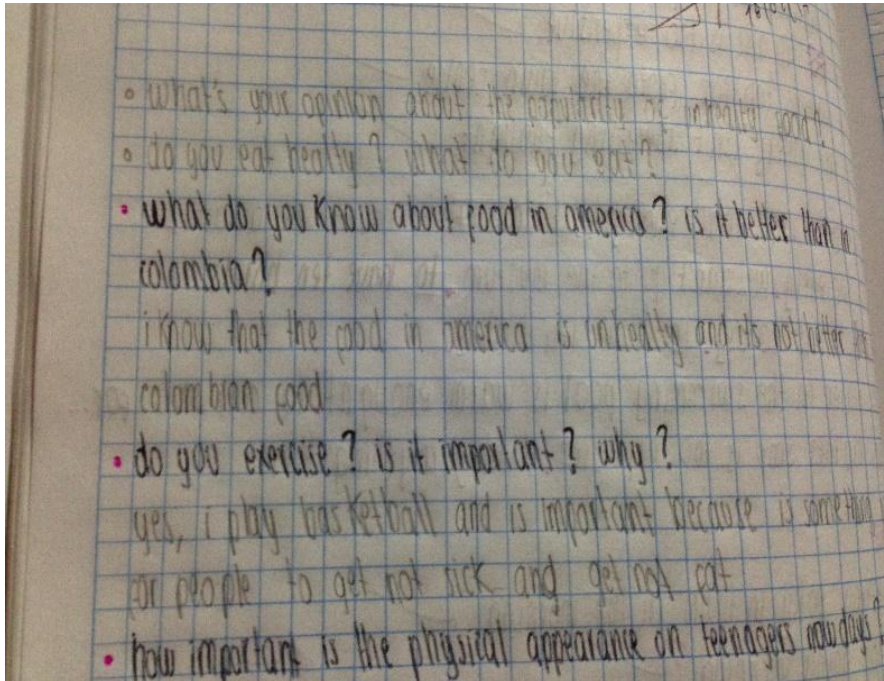 • what's your opinion about the popularity of inhealty food?
• do you eat healty? what do you eat?
• what do you know about food in america? is it better than in
colombia?
i know that the food in america is inhealty and its not better
colombian food
• do you exercise? is it important? why?
yes, i play basketball and is important because is something
for people to get not sick and get not fat
• how important is the physical appearance on teenagers nowdays?